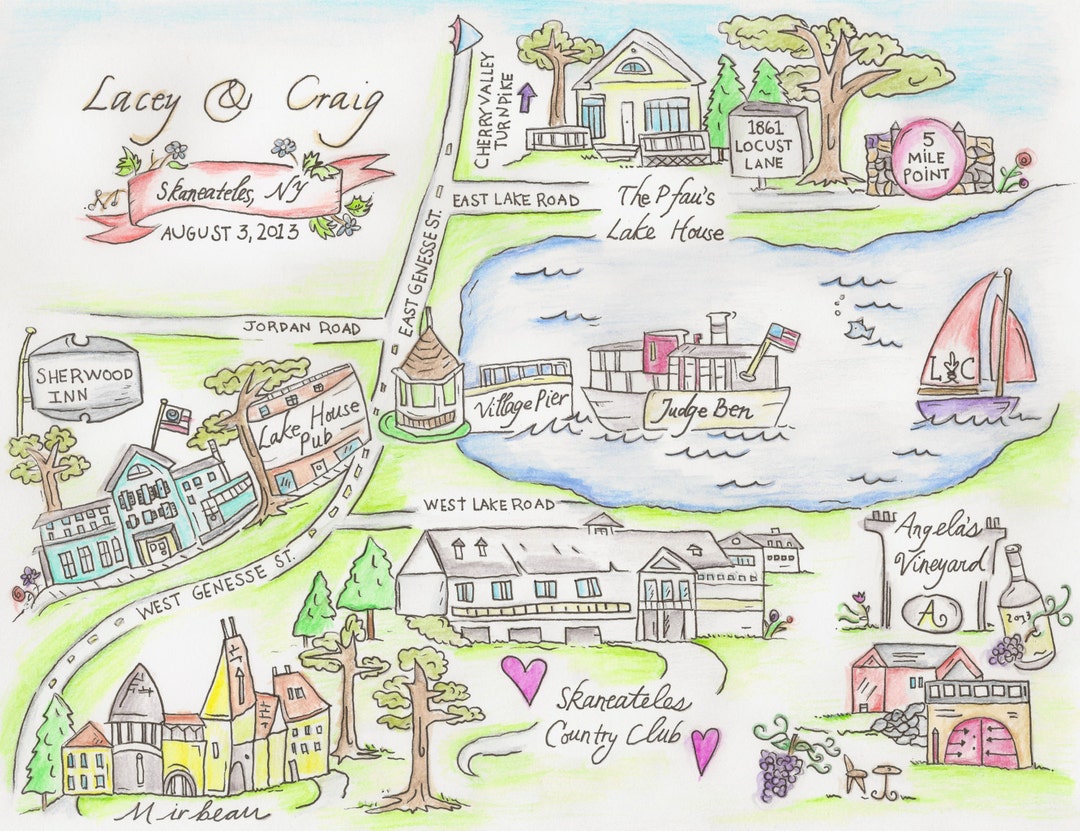 Lacey & Craig
Skaneateles, NY
AUGUST 3, 2013
CHERRY VALLEY
TURNPIKE
1861
LOCUST
LANE
5
MILE
POINT
EAST LAKE ROAD
The Pfau's
Lake House
EAST GENESSE ST.
JORDAN ROAD
SHERWOOD
INN
Lake House
Pub
Village Pier
Judge Ben
L C
WEST LAKE ROAD
WEST GENESSE ST.
Angela's
Vineyard
A
2013
Skaneateles
Country Club
Mirbeau